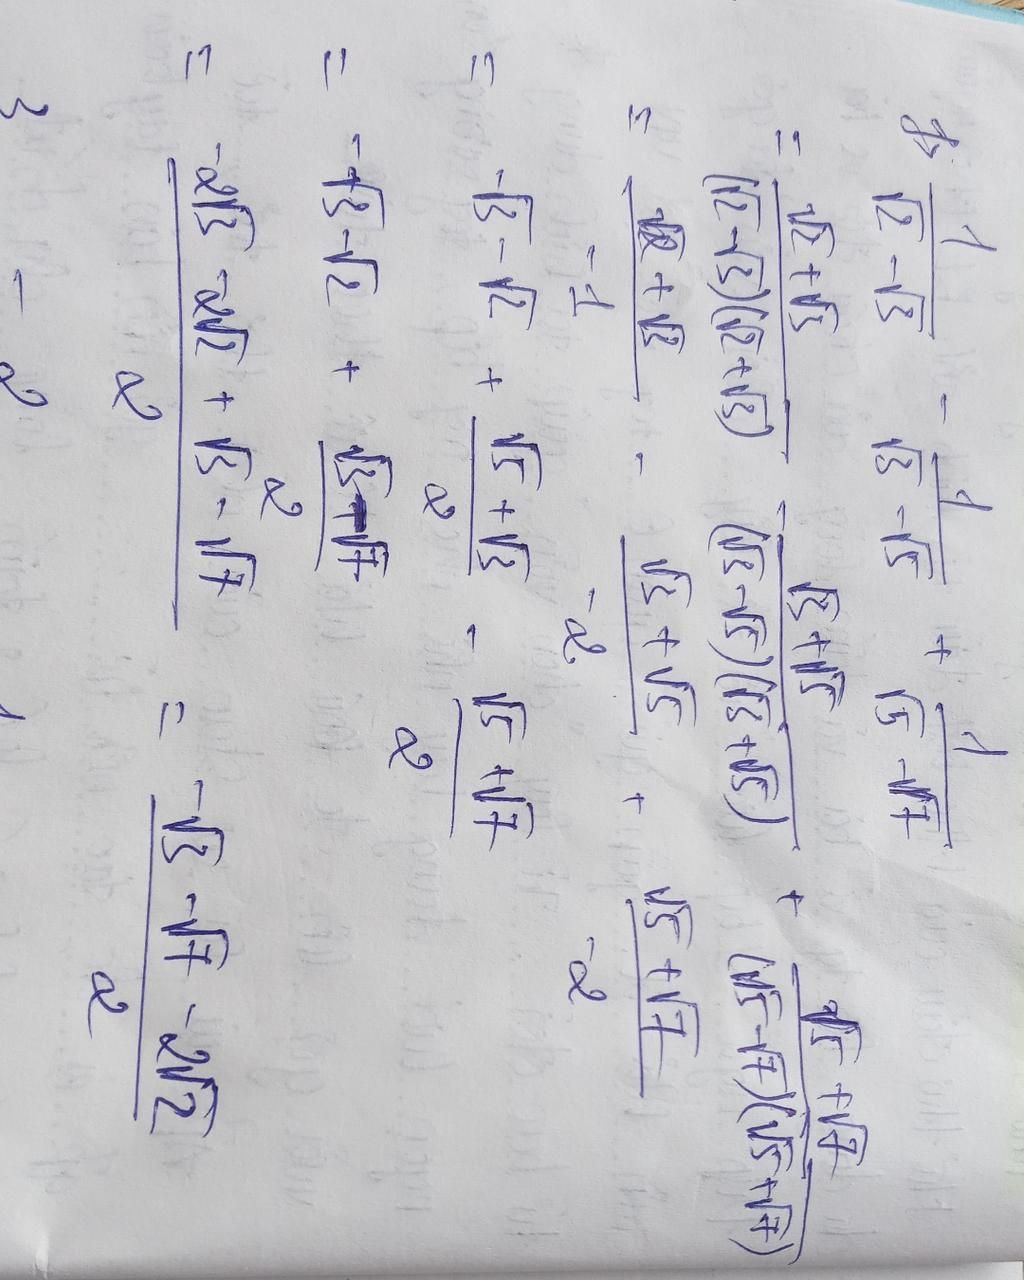 b. 1/(√2 - √3) - 1/(√3 - √5) + 1/(√5 - √7)
= (√2 + √3)/((√2 - √3)(√2 + √3)) - (√3 + √5)/((√3 - √5)(√3 + √5)) + (√5 + √7)/((√5 - √7)(√5 + √7))
= (√2 + √3)/-1 - (√3 + √5)/-2 + (√5 + √7)/-2
= -√3 - √2 + (√5 + √3)/2 - (√5 + √7)/2
= -√3 - √2 + (√3 - √7)/2
= (-2√3 - 2√2 + √3 - √7)/2 = (-√3 - √7 - 2√2)/2